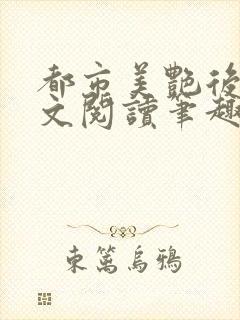 都市美艷後
文閱讀筆趣
東篱烏鴉